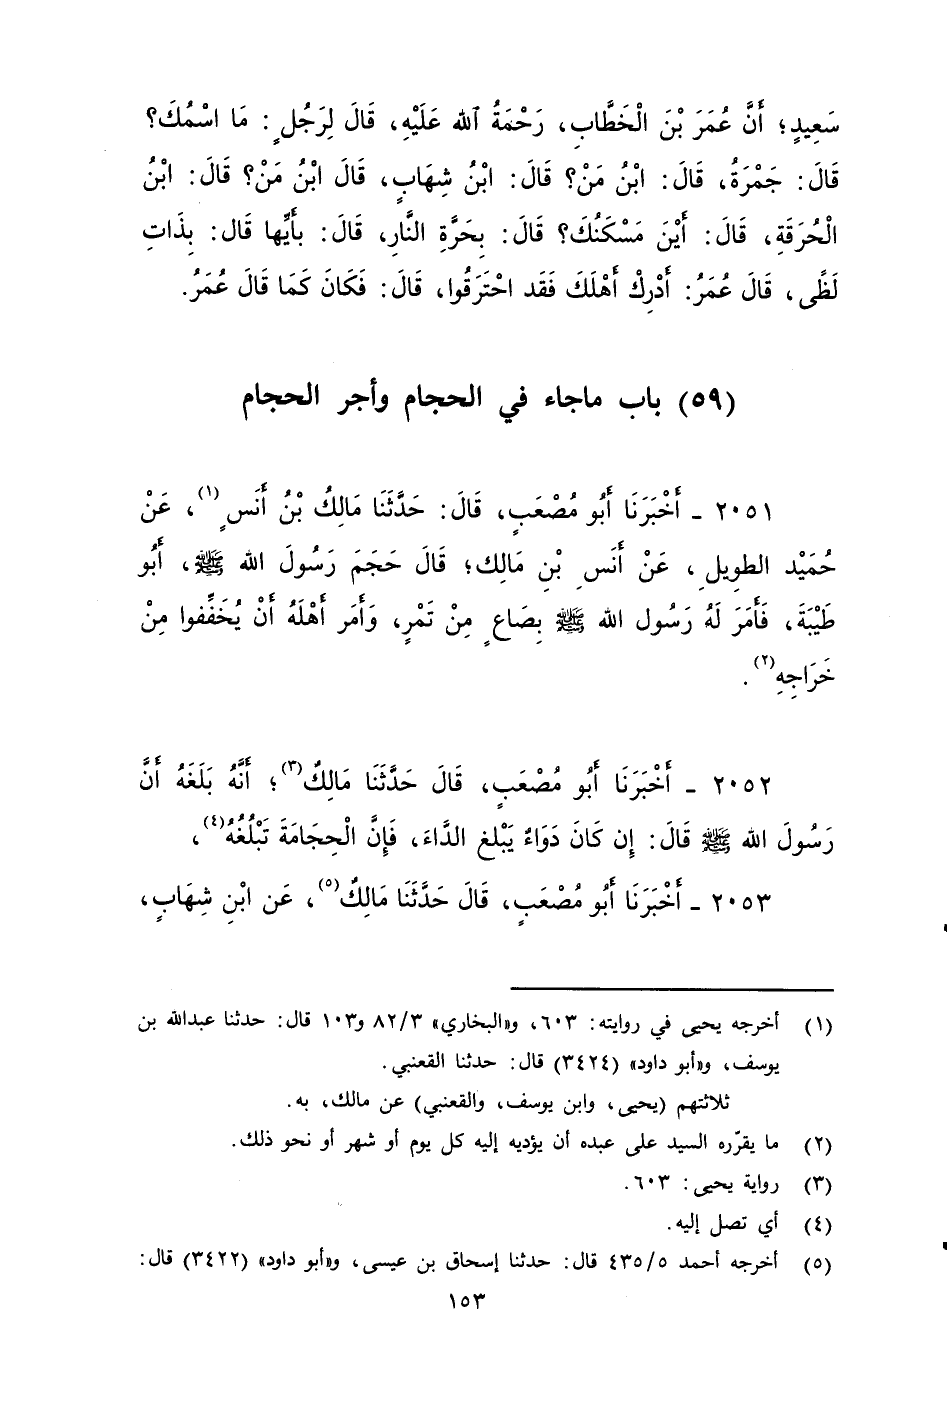 سَعِيدٍ؛ أَنَّ عُمَرَ بْنَ الْخَطَّابِ، رَحْمَةُ ٱلله عَلَيْهِ، قَالَ لِرَجُلٍ: مَا اسْمُكَ؟
قَالَ: جَمْرَةُ، قَالَ: ابْنُ مَنْ؟ قَالَ: ابْنُ شِهَابٍ، قَالَ ابْنُ مَنْ؟ قَالَ: ابْنُ
الْحُرَقَةِ، قَالَ: أَيْنَ مَسْكَنُكَ؟ قَالَ: بِحَرَّةِ النَّارِ، قَالَ: بأَيِّها قَال: بِذَاتِ
لَظًى، قَالَ عُمَرُ: أَدْرِكْ أَهْلَكَ فَقَد احْتَرَقُوا، قَالَ: فَكَانَ كَمَا قَالَ عُمَرُ.
(٥٩) باب ماجاء في الحجام وأجر الحجام
٢٠٥١ ـ أَخْبَرَنَا أَبُو مُصْعَبٍ، قَالَ: حَدَّثَنَا مَالِكُ بْنُ أَنَسٍ(١)، عَنْ
حُمَيْد الطويلِ، عَنْ أَنَسِ بْنِ مَالِك؛ قَالَ حَجَمَ رَسُولَ الله ﷺ، أَبُو
طَيْبَةَ، فَأَمَرَ لَهُ رَسُول الله ﷺ بِصَاعٍ مِنْ تَمْرٍ، وَأَمَر أَهْلَهُ أَنْ يُخَفِّفوا مِنْ
خَرَاجِهِ(٢).
٢٠٥٢ ـ أَخْبَرَنَا أَبُو مُصْعَبٍ، قَالَ حَدَّثَنَا مَالِكٌ(٣)؛ أَنَّهُ بَلَغَهُ أَنَّ
رَسُولَ الله ﷺ قَالَ: إِن كَانَ دَوَاءٌ يَبْلغ الدَّاءَ، فَإِنَّ الْحِجَامَةَ تَبْلُغُهُ(٤)،
٢٠٥٣ ـ أَخْبَرَنَا أَبُو مُصْعَبٍ، قَالَ حَدَّثَنَا مَالِكٌ(٥)، عَن ابْنِ شِهَابٍ،
(١) أخرجه يحيى في روايته: ٦٠٣، و«البخاري» ٨٢/٣ و١٠٣ قال: حدثنا عبدالله بن
يوسف، و«أبو داود» (٣٤٢٤) قال: حدثنا القعنبي.
ثلاثتهم (يحيى، وابن يوسف، والقعنبي) عن مالك، به.
(٢) ما يقرّره السيد على عبده أن يؤديه إليه كل يوم أو شهر أو نحو ذلك.
(٣) رواية يحيى: ٦٠٣.
(٤) أي تصل إليه.
(٥) أخرجه أحمد ٤٣٥/٥ قال: حدثنا إسحاق بن عيسى، و«أبو داود» (٣٤٢٢) قال:
١٥٣